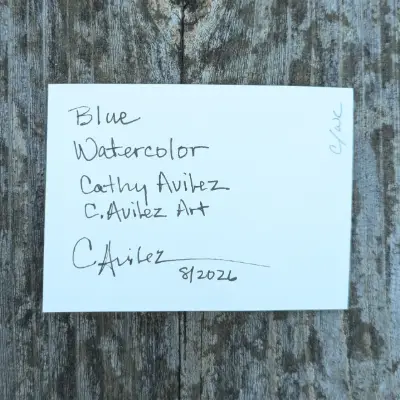 Blue
Watercolor
Cathy Avilez
C. Avilez Art
C Avilez
8/2026